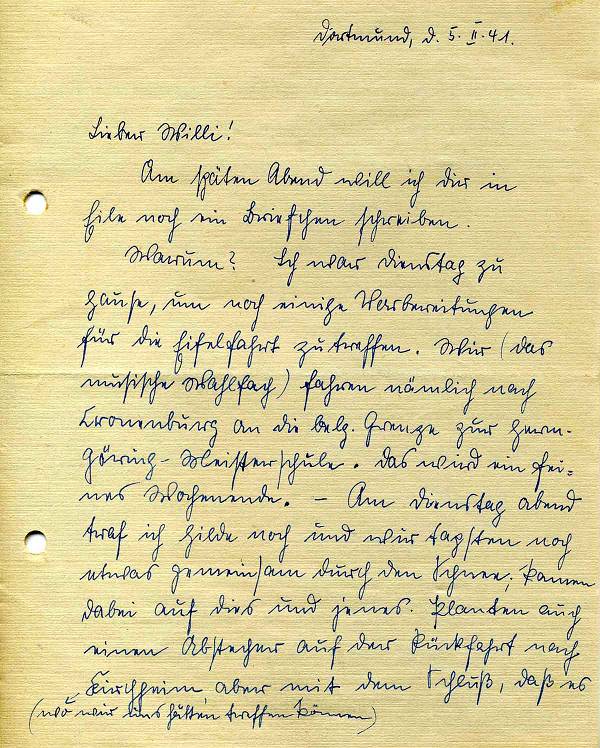 Dortmund, d. 5. II. 41.
Lieber Willi!
Am späten Abend will ich dir in
Eile noch ein Briefchen schreiben.
Warum? Ich war Dienstag zu
Hause, um noch einige Vorbereitungen
für die Eifelfahrt zu treffen. Wir (das
musische Wahlfach) fahren nämlich nach
Cronenburg an die belg. Grenze zur Herm.
Göring-Meisterschule. Das wird ein fei-
nes Wochenende. – Am Dienstag abend
traf ich Hilde noch und wir tapsten noch
etwas gemeinsam durch den Schnee; kamen
dabei auf dies und jenes. Planten auch
einen Abstecher auf der Rückfahrt nach
Kirchheim, aber mit dem Schluß, daß es
(wo wir uns hätten treffen können)